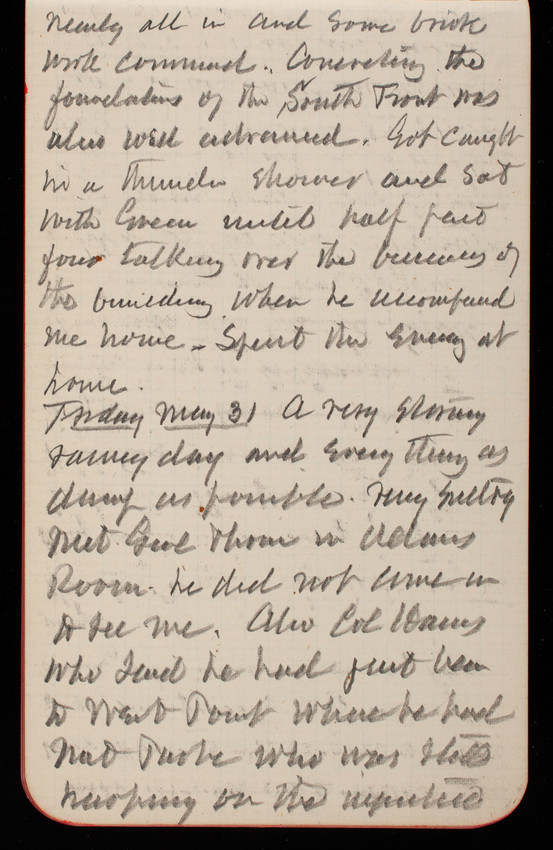 nearly all in and some brick
work commencd. Concreting the
foundations of the South Front was
also well advanced. Got caught
in a thunder shower and sat
with Green until half past
four talking over the business of
the building when he accompand
me home - Spent the evening at
home.
Friday May 31 A very stormy
rainy day and everything as
damp as possible. Very sultry
Met Genl Thom in Adams
Room. he did not come in
to see me. Also Col
who said he had just been
to West Point where he had
met who was still
harping on the